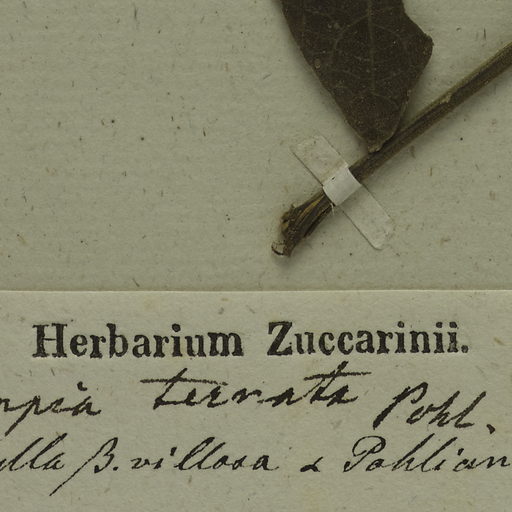 Herbarium Zuccarinii.
mpia ternata Pohl.
ylla β. villosa & Pohlian